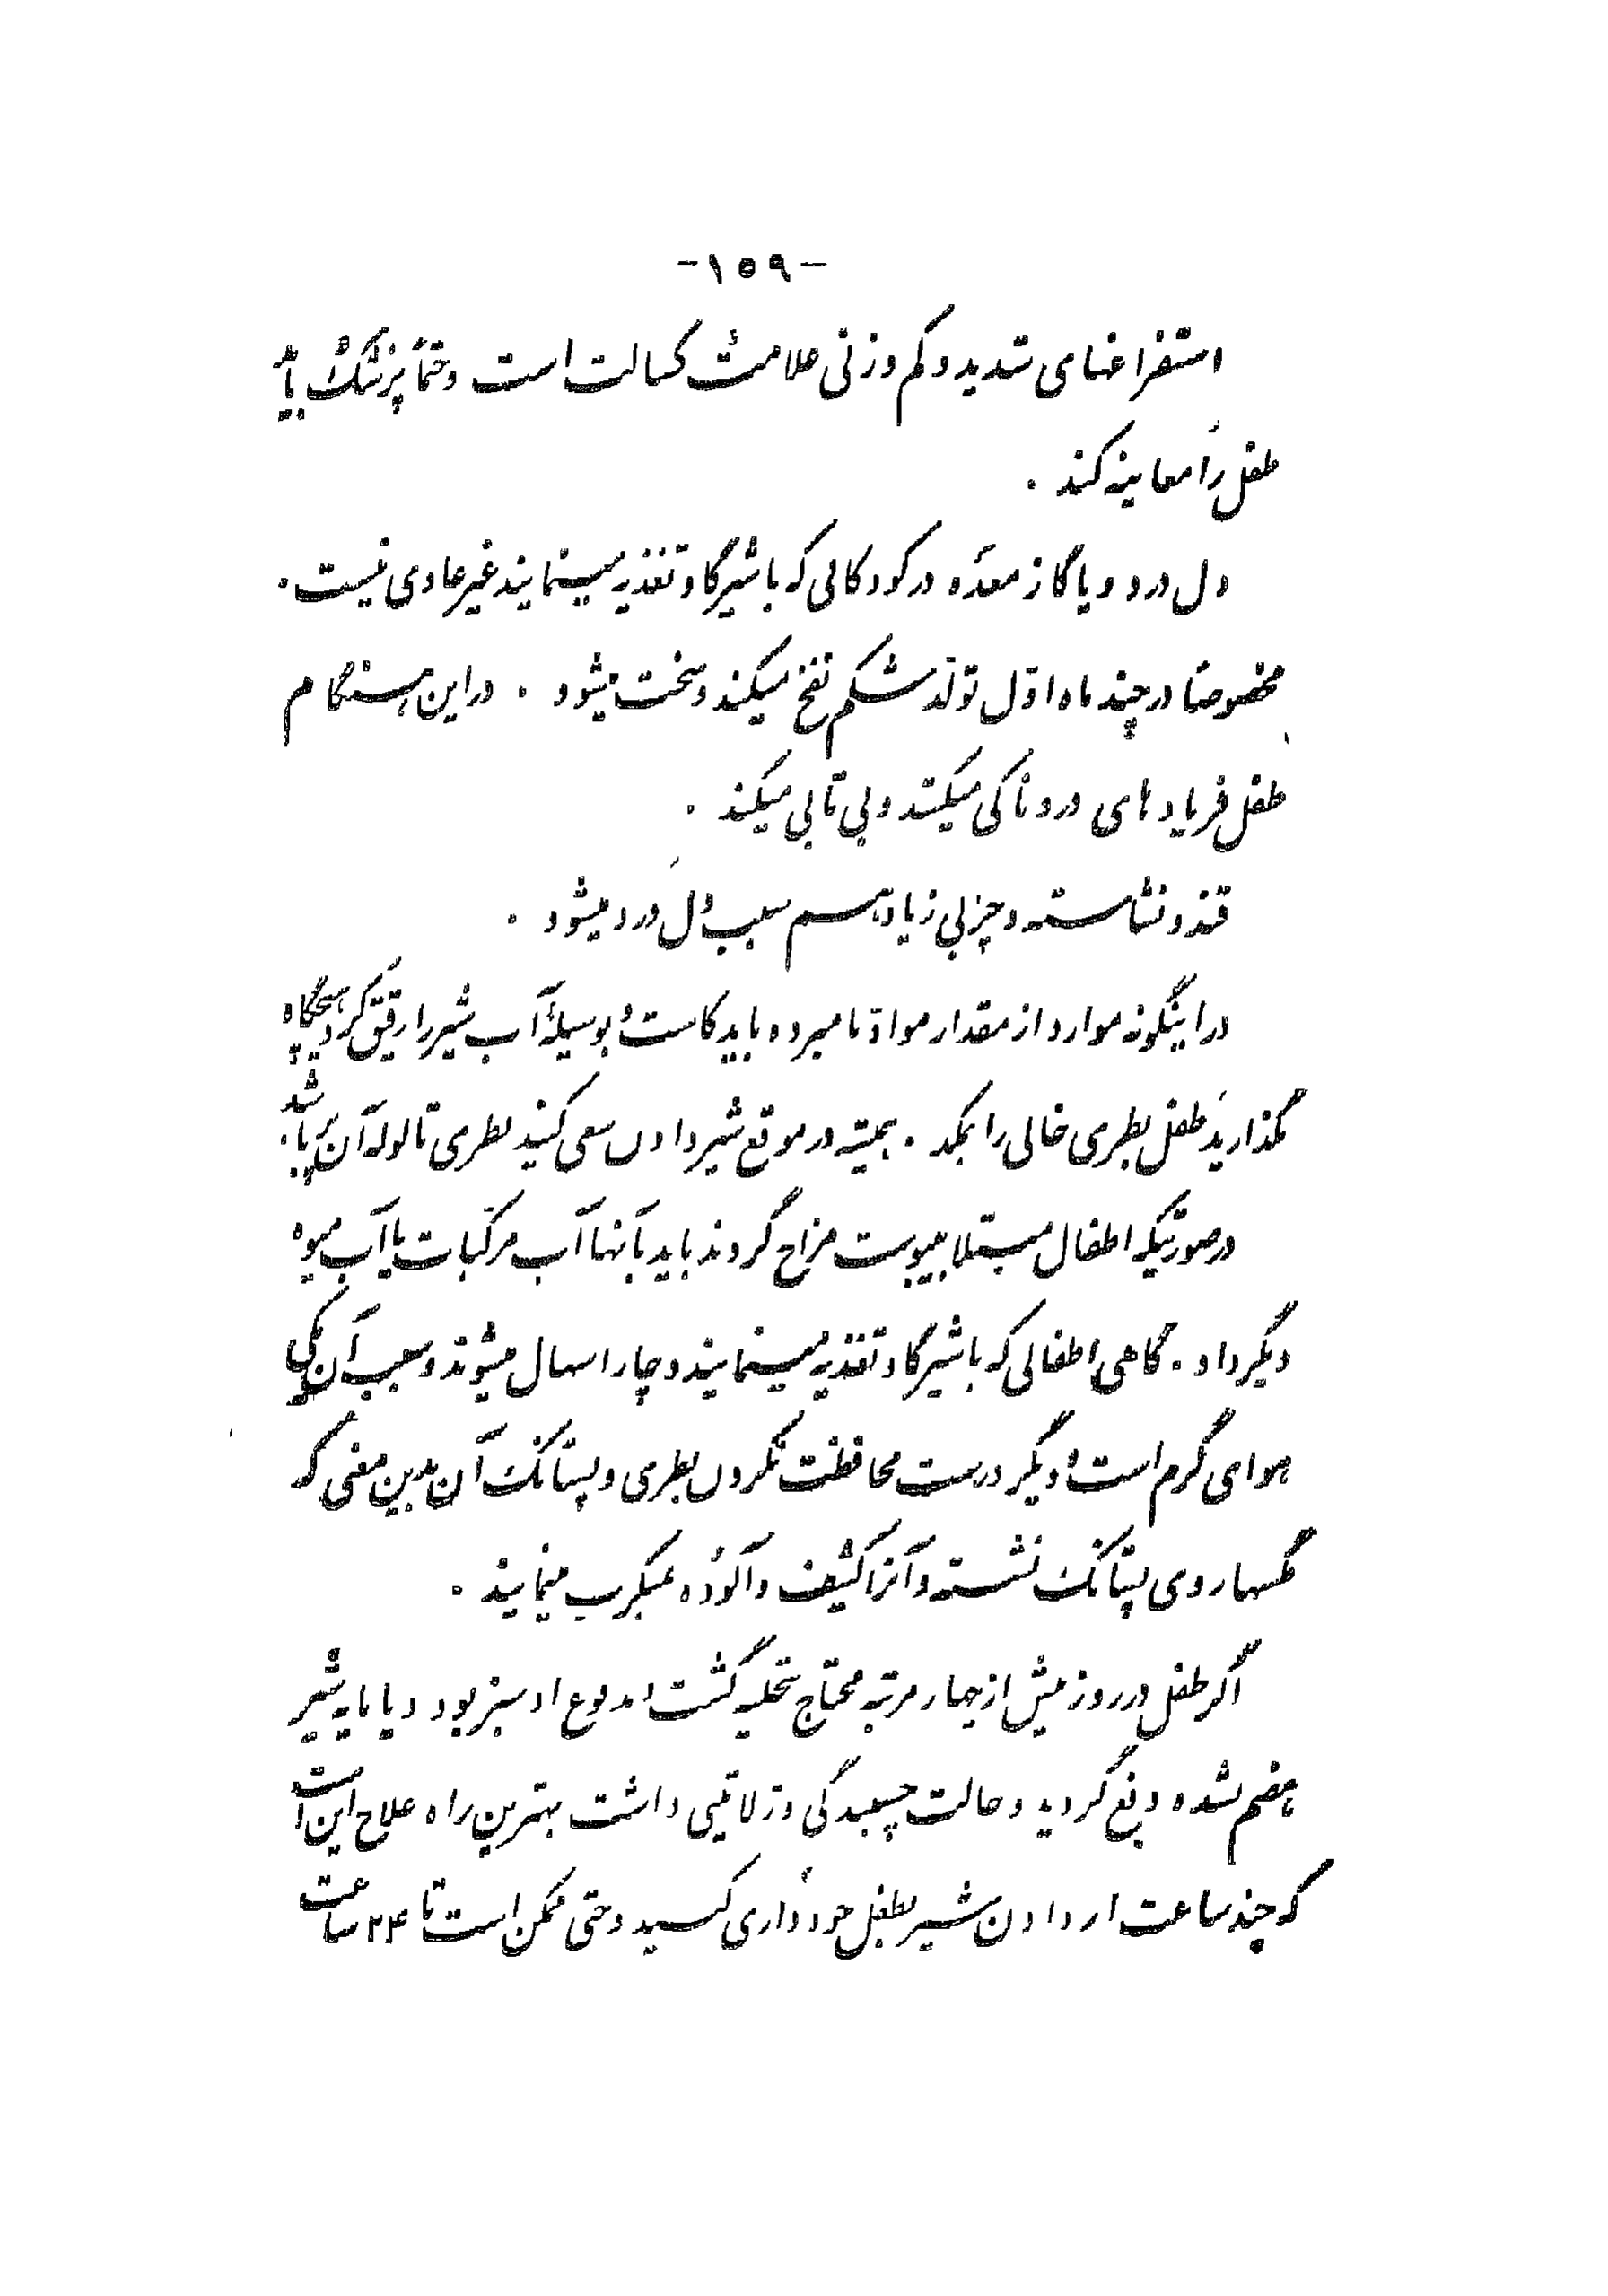 -۱۵۹-
استفراغهای شدید و کم وزنی علامت کسالت است و حتماً پزشک باید
طفل را معاینه کند .
دل درد و یا گاز معده در کودکانی که با شیر گاو تغذیه مینمایند غیر عادی نیست .
مخصوصاً در چند ماه اوّل تولّد شکم نفخ میکند و سخت میشود . در این هنگام
طفل فریادهای دردناکی میکشد و بی تابی میکند .
قند و نشاسته و چربی زیاد هم سبب دل درد میشود .
در اینگونه موارد از مقدار موادّ نامبرده باید کاست و بوسیلهٔ آب شیر را رقیق کرد هیچگاه
نگذارید طفل بطری خالی را بمکد . همیشه در موقع شیر دادن سعی کنید بطری تا لوله آن پر باشد .
در صورتیکه اطفال مبتلا بیبوست مزاج گردند باید بآنها آب مرکّبات یا آب میوه
دیگر داد . گاهی اطفالی که با شیر گاو تغذیه مینمایند دچار اسهال میشوند و سبب آن یکی
هوای گرم است و دیگر درست محافظت نکردن بطری و پستانک آن بدین معنی که
مگسها روی پستانک نشسته و آنرا کثیف و آلوده بمیکرب مینمایند .
اگر طفل در روز بیش از چهار مرتبه محتاج تخلیه گشت و مدفوع او سبز بود و یا مایه شیر
هضم نشده دفع گردید و حالت چسبندگی و ژلاتینی داشت بهترین راه علاج این است
که چند ساعت از دادن شیر بطفل خودداری کنید و حتی ممکن است تا ۲۴ ساعت